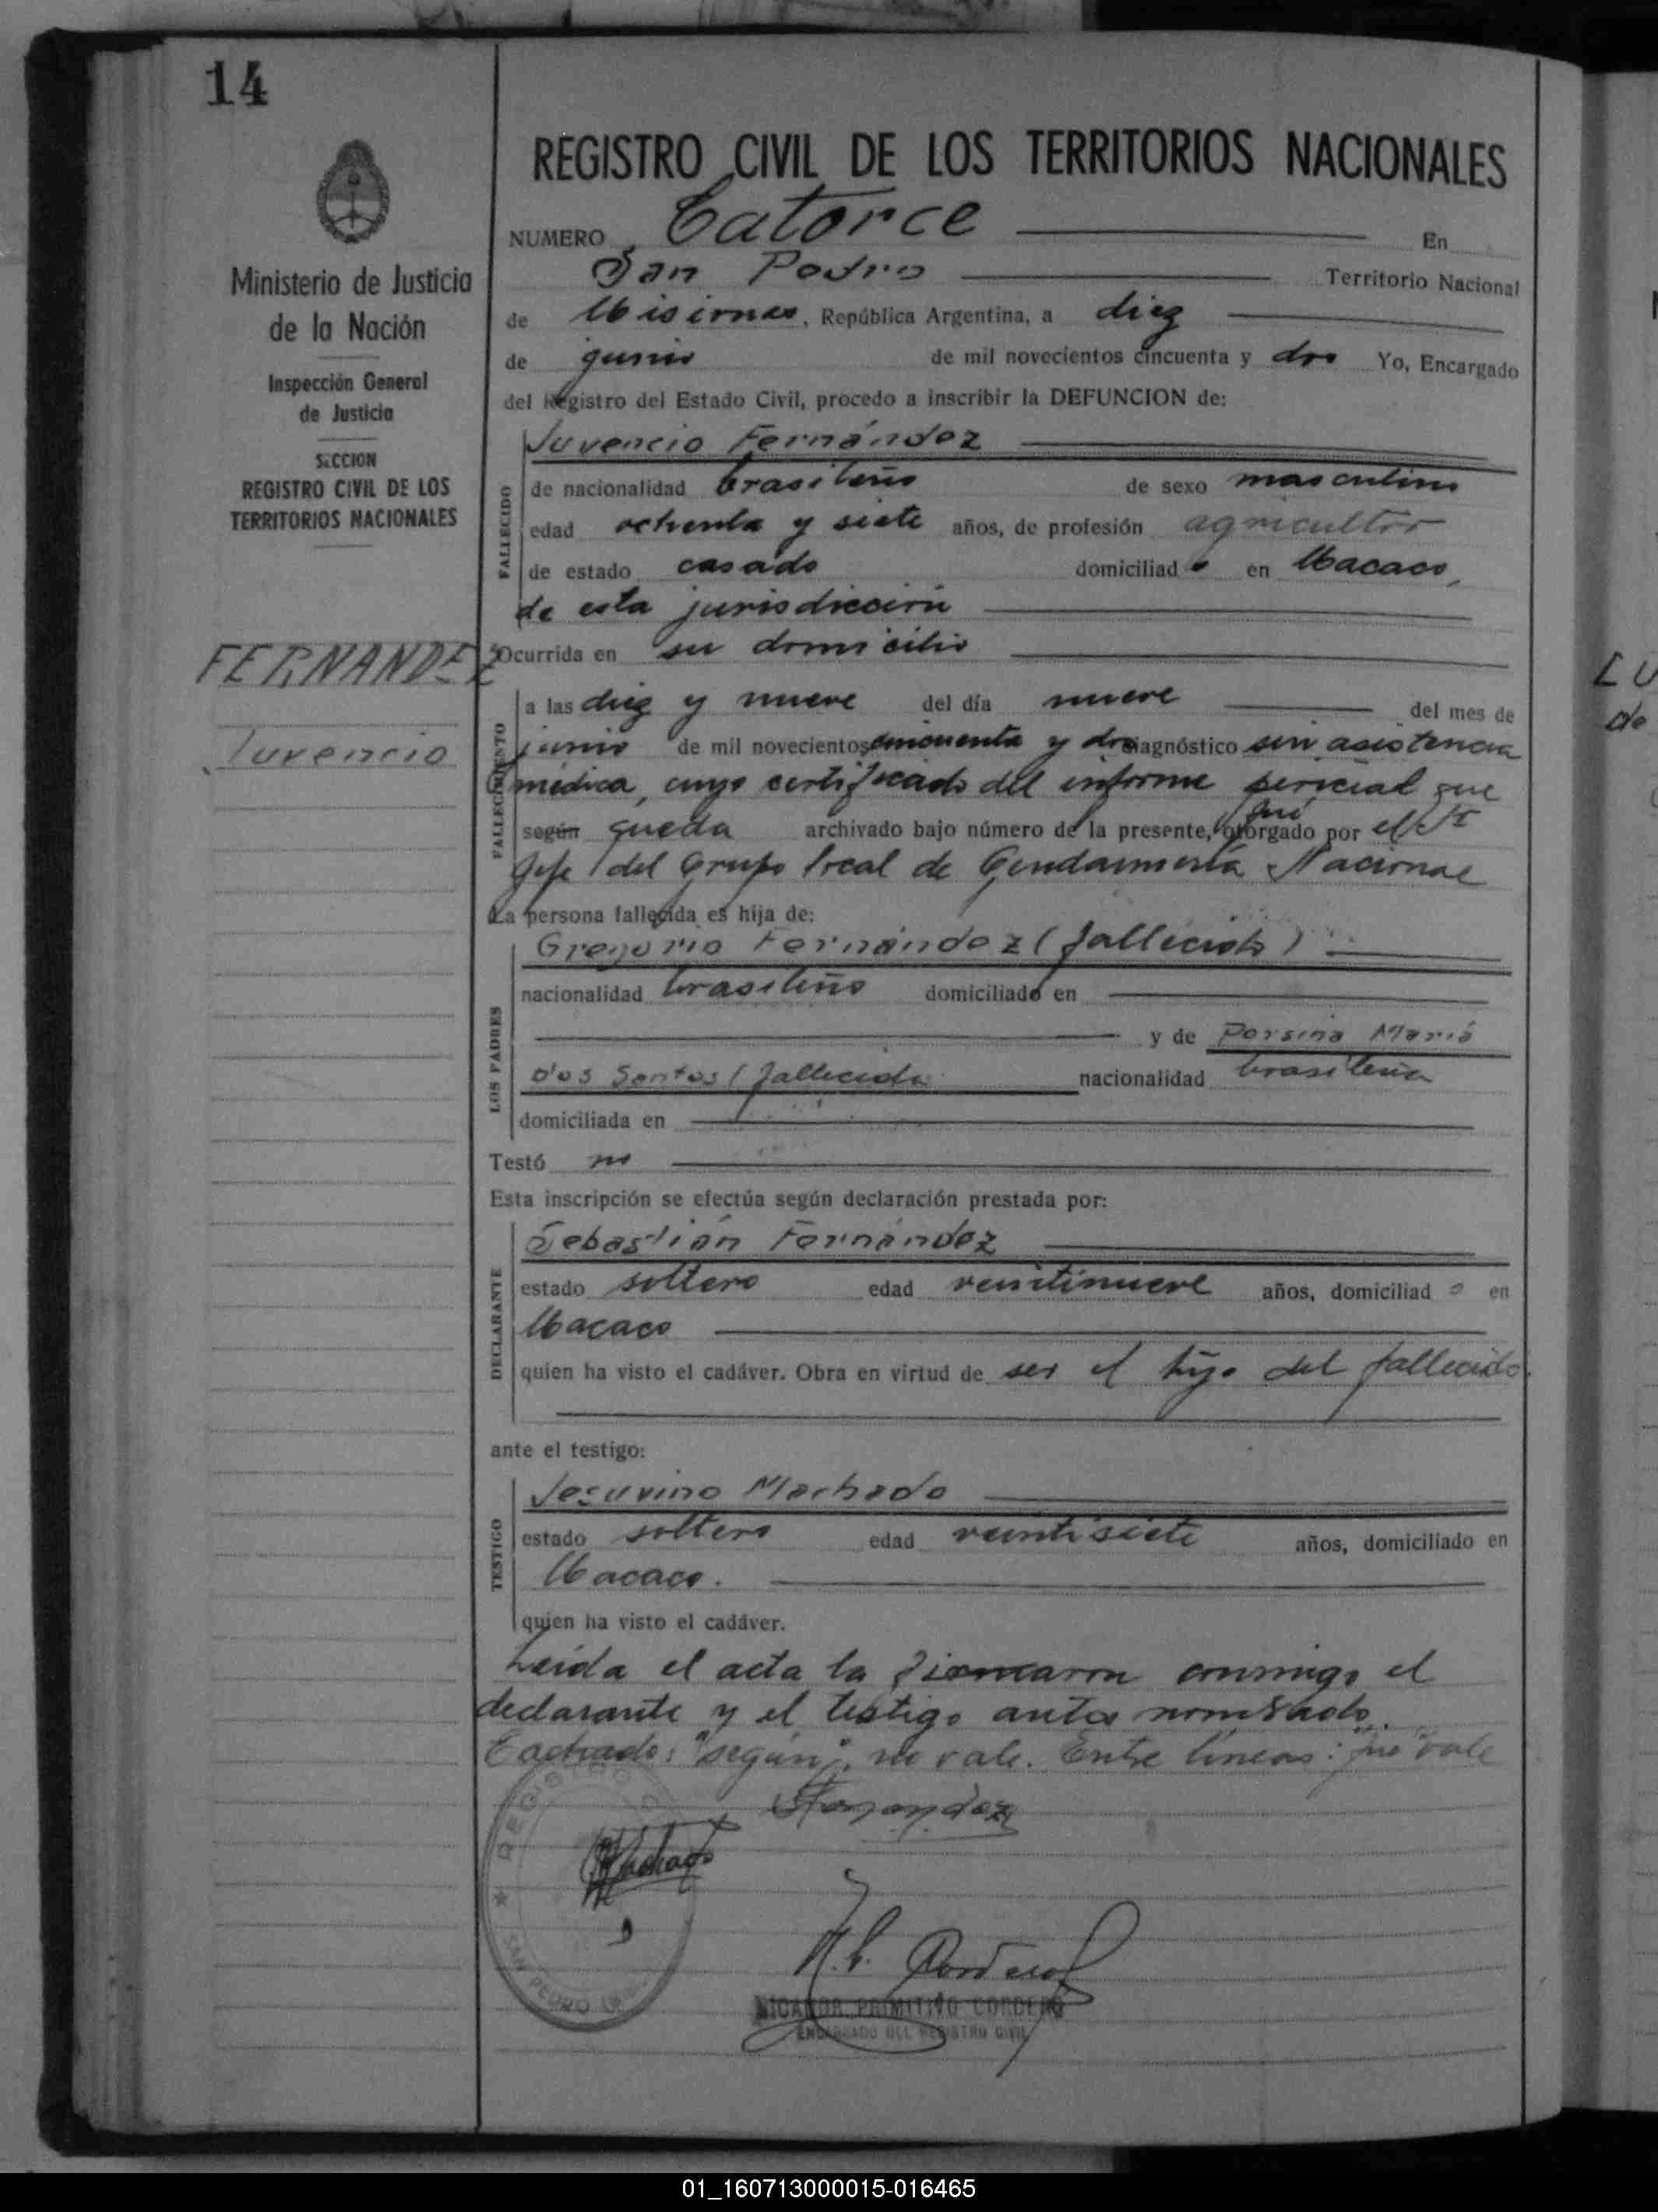 14
REGISTRO CIVIL DE LOS TERRITORIOS NACIONALES
NUMERO Catorce En
San Pedro Territorio Nacional
de Misiones, República Argentina, a diez
de junio de mil novecientos cincuenta y dos Yo, Encargado
del Registro del Estado Civil, procedo a inscribir la DEFUNCION de:
Ministerio de Justicia
de la Nación
Inspección General
de Justicia
SECCION
REGISTRO CIVIL DE LOS
TERRITORIOS NACIONALES
FERNANDEZ
Juvencio
FALLECIDO
Juvencio Fernández
de nacionalidad brasileño de sexo masculino
edad ochenta y siete años, de profesión agricultor
de estado casado domiciliado en Macaco,
de esta jurisdicción
Ocurrida en su domicilio
FALLECIMIENTO
a las diez y nueve del día nueve del mes de
junio de mil novecientos cincuenta y dos diagnóstico sin asistencia
médica, cuyo certificado del informe pericial que
según queda archivado bajo número de la presente, fué otorgado por el Sr
Jefe del Grupo local de Gendarmería Nacional
La persona fallecida es hija de:
LOS PADRES
Gregorio Fernández (fallecido)
nacionalidad brasileño domiciliado en
y de Porsina María
dos Santos (fallecida nacionalidad brasileña
domiciliada en
Testó no
Esta inscripción se efectúa según declaración prestada por:
DECLARANTE
Sebastián Fernández
estado soltero edad veintinueve años, domiciliado en
Macaco
quien ha visto el cadáver. Obra en virtud de ser el hijo del fallecido.
ante el testigo:
TESTIGO
Jesuvino Machado
estado soltero edad veintisiete años, domiciliado en
Macaco.
quien ha visto el cadáver.
Leída el acta la firmaron conmigo el
declarante y el testigo antes nombrado.
Tachado: "según", no vale. Entre líneas: "fué" vale
Fernandez
Machado
REGISTRO
SAN PEDRO
N.P. Cordero
NICANOR PRIMITIVO CORDERO
ENCARGADO DEL REGISTRO CIVIL
LU
de
01_160713000015-016465